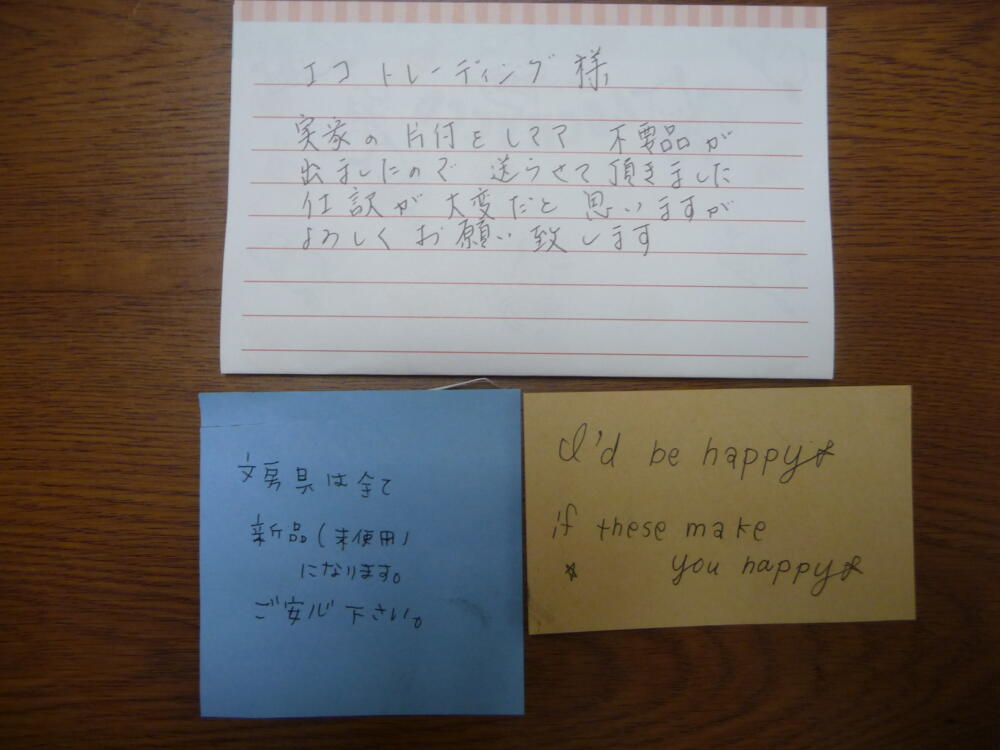 エコトレーディング様
実家の片付をしてて 不要品が
出ましたので 送らせて頂きました
仕訳が 大変だと 思いますが
よろしく お願い 致します
文房具は全て
新品(未使用)
になります。
ご安心下さい。
I'd be happy☆
if these make
☆ you happy☆